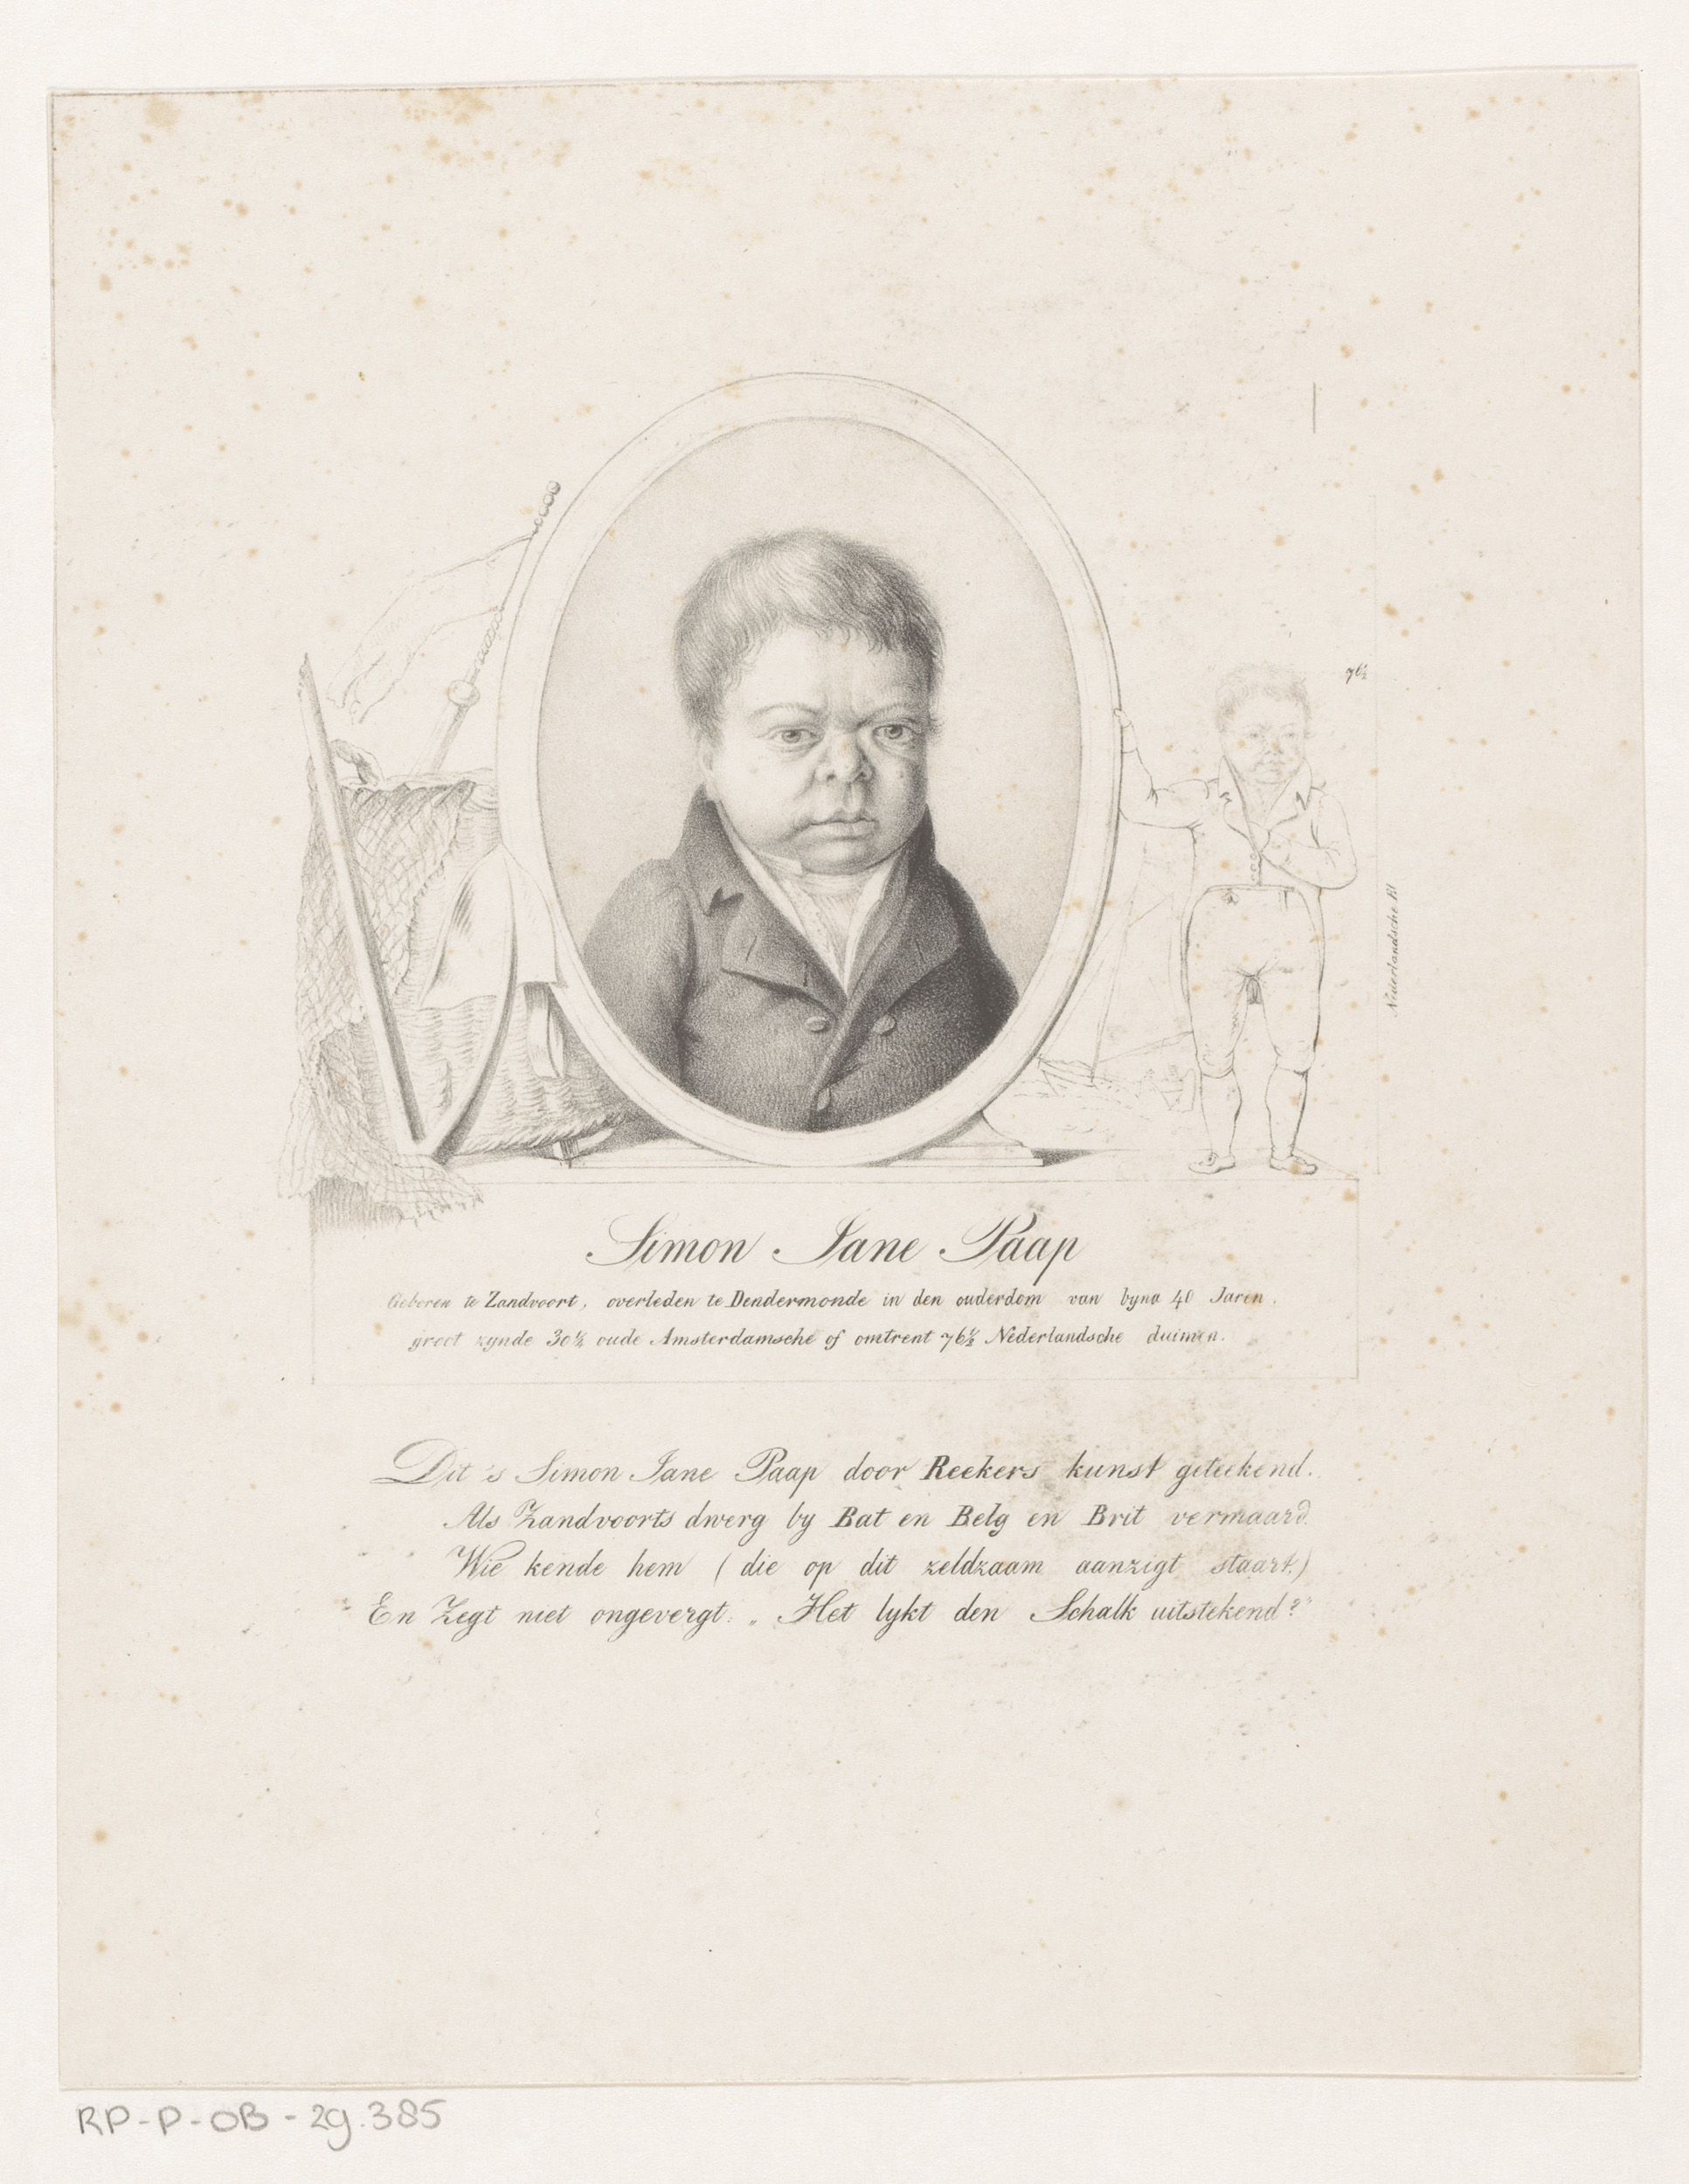 76½
Nederlandsche El
Simon Jane Paap
Geboren te Zandvoort, overleden te Dendermonde in den ouderdom van byna 40 Jaren.
groot zynde 30¼ oude Amsterdamsche of omtrent 76½ Nederlandsche duimen.
Dit 's Simon Jane Paap door Reekers kunst geteekend.
Als Zandvoorts dwerg by Bat en Belg en Brit vermaard.
Wie kende hem (die op dit zeldzaam aanzigt staart)
En Zegt niet ongevergt: „Het lykt den Schalk uitstekend?"
RP-P-OB-29.385